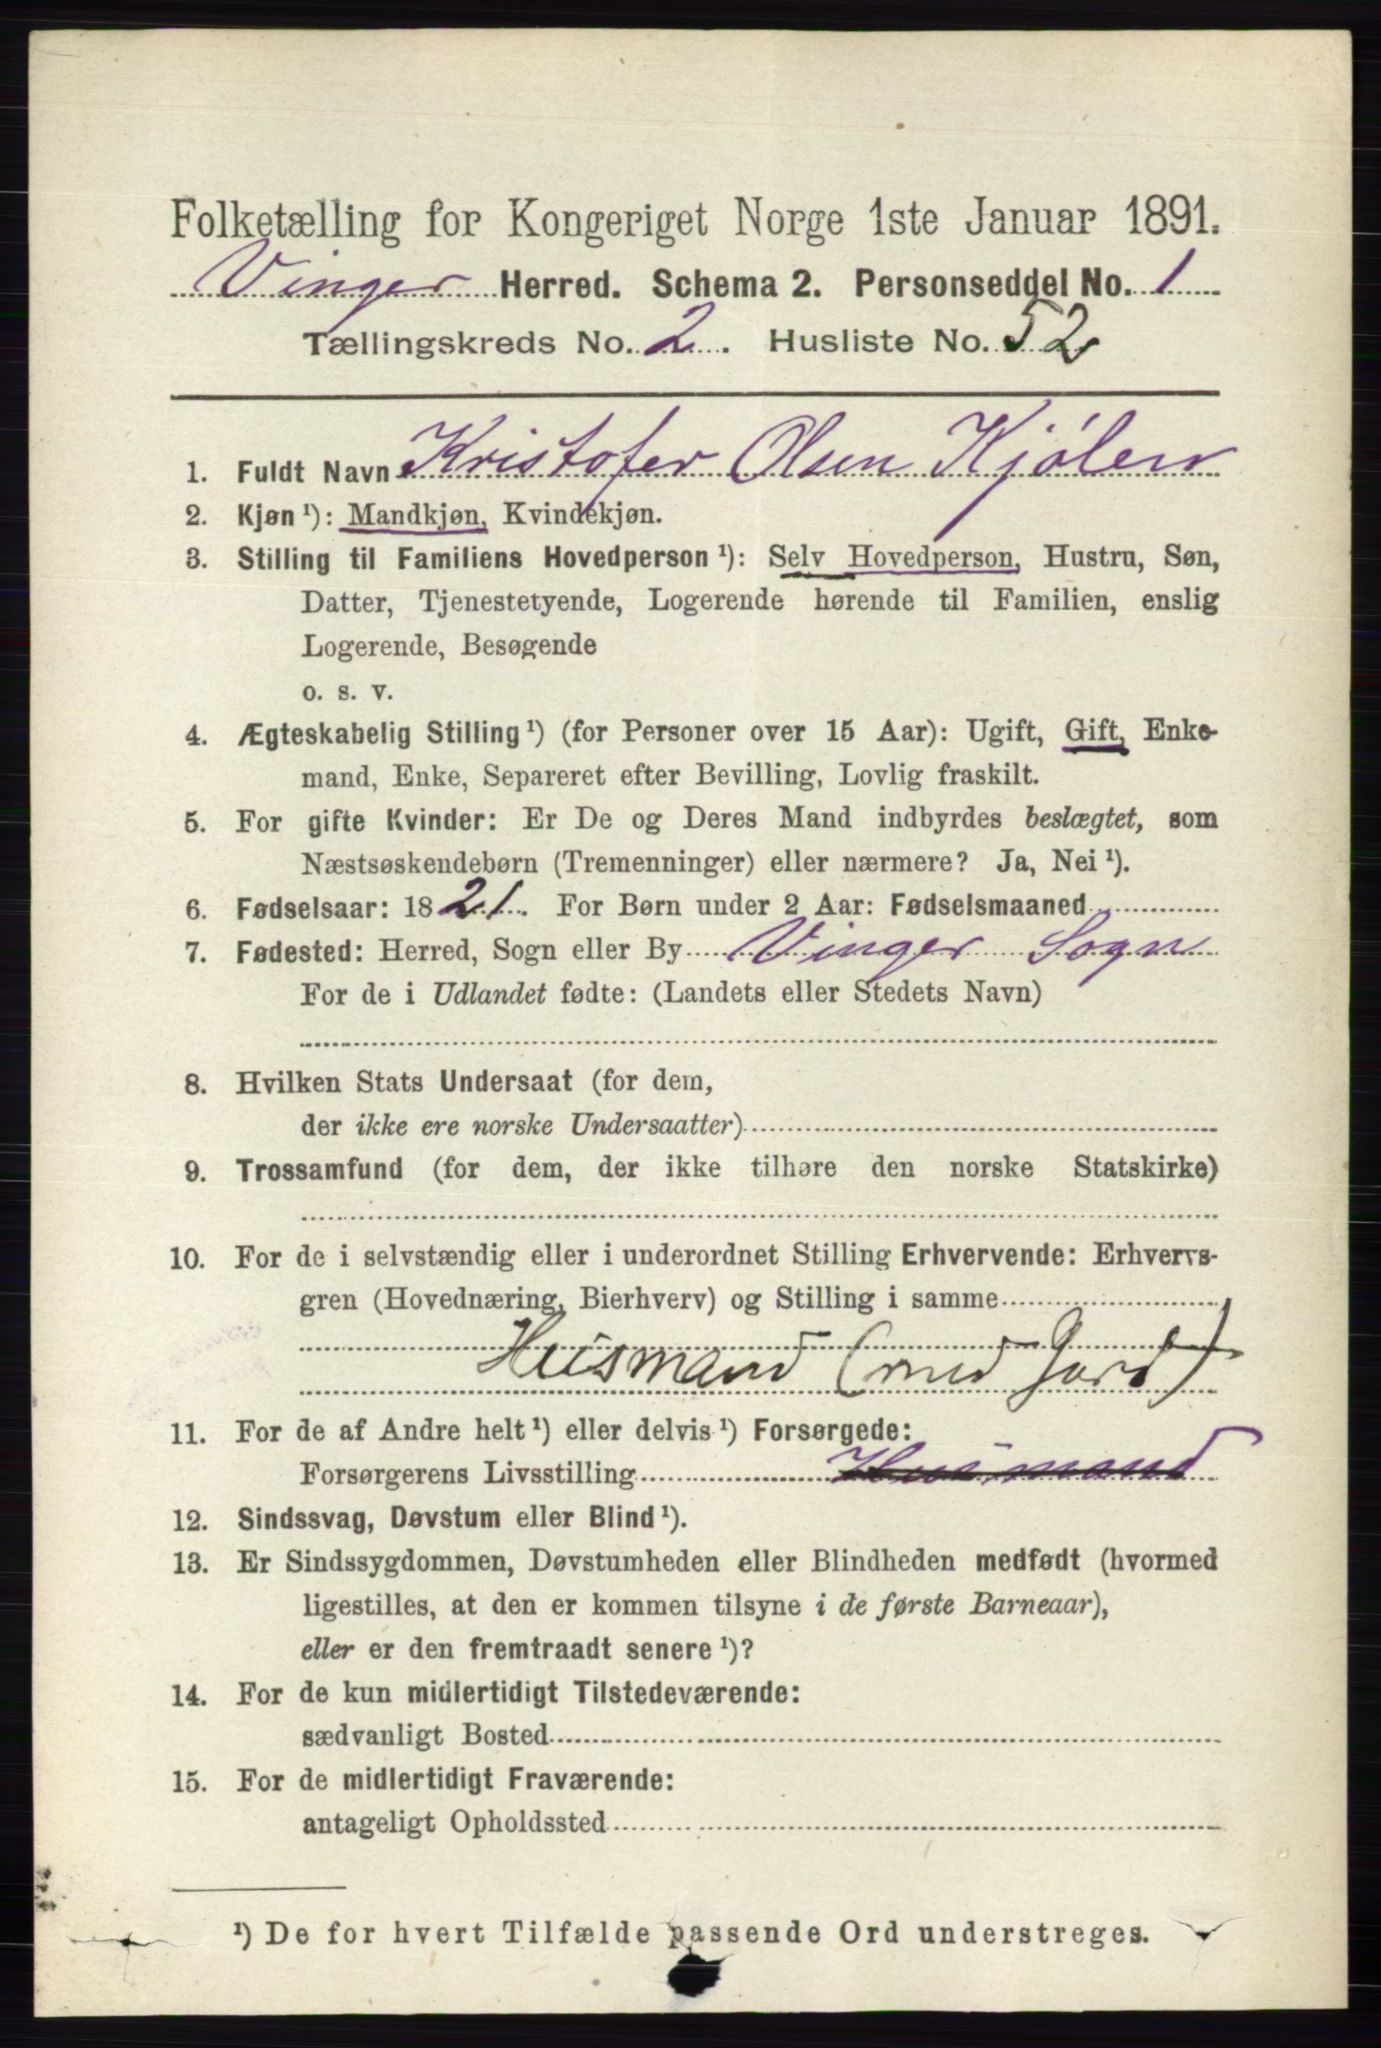 Folketælling for Kongeriget Norge 1ste Januar 1891.
Vinger Herred. Schema 2. Personseddel No. 1
Tællingskreds No. 2. Husliste No. 52
1. Fuldt Navn Kristofer Olsen Kjölen
2. Kjøn¹): Mandkjøn, Kvindekjøn.
3. Stilling til Familiens Hovedperson¹): Selv Hovedperson, Hustru, Søn,
Datter, Tjenestetyende, Logerende hørende til Familien, enslig
Logerende, Besøgende
o. s. v.
4. Ægteskabelig Stilling¹) (for Personer over 15 Aar): Ugift, Gift, Enke-
mand, Enke, Separeret efter Bevilling, Lovlig fraskilt.
5. For gifte Kvinder: Er De og Deres Mand indbyrdes beslægtet, som
Næstsøskendebørn (Tremenninger) eller nærmere? Ja, Nei¹).
6. Fødselsaar: 1821. For Børn under 2 Aar: Fødselsmaaned
7. Fødested: Herred, Sogn eller By Vinger Sogn
For de i Udlandet fødte: (Landets eller Stedets Navn)
8. Hvilken Stats Undersaat (for dem,
der ikke ere norske Undersaatter)
9. Trossamfund (for dem, der ikke tilhøre den norske Statskirke)
10. For de i selvstændig eller i underordnet Stilling Erhvervende: Erhvervs-
gren (Hovednæring, Bierhverv) og Stilling i samme
Huismand (med Jord)
11. For de af Andre helt¹) eller delvis¹) Forsørgede:
Forsørgerens Livsstilling Huismand
12. Sindssvag, Døvstum eller Blind¹).
13. Er Sindssygdommen, Døvstumheden eller Blindheden medfødt (hvormed
ligestilles, at den er kommen tilsyne i de første Barneaar),
eller er den fremtraadt senere¹)?
14. For de kun midlertidigt Tilstedeværende:
sædvanligt Bosted
15. For de midlertidigt Fraværende:
antageligt Opholdssted
¹) De for hvert Tilfælde passende Ord understreges.